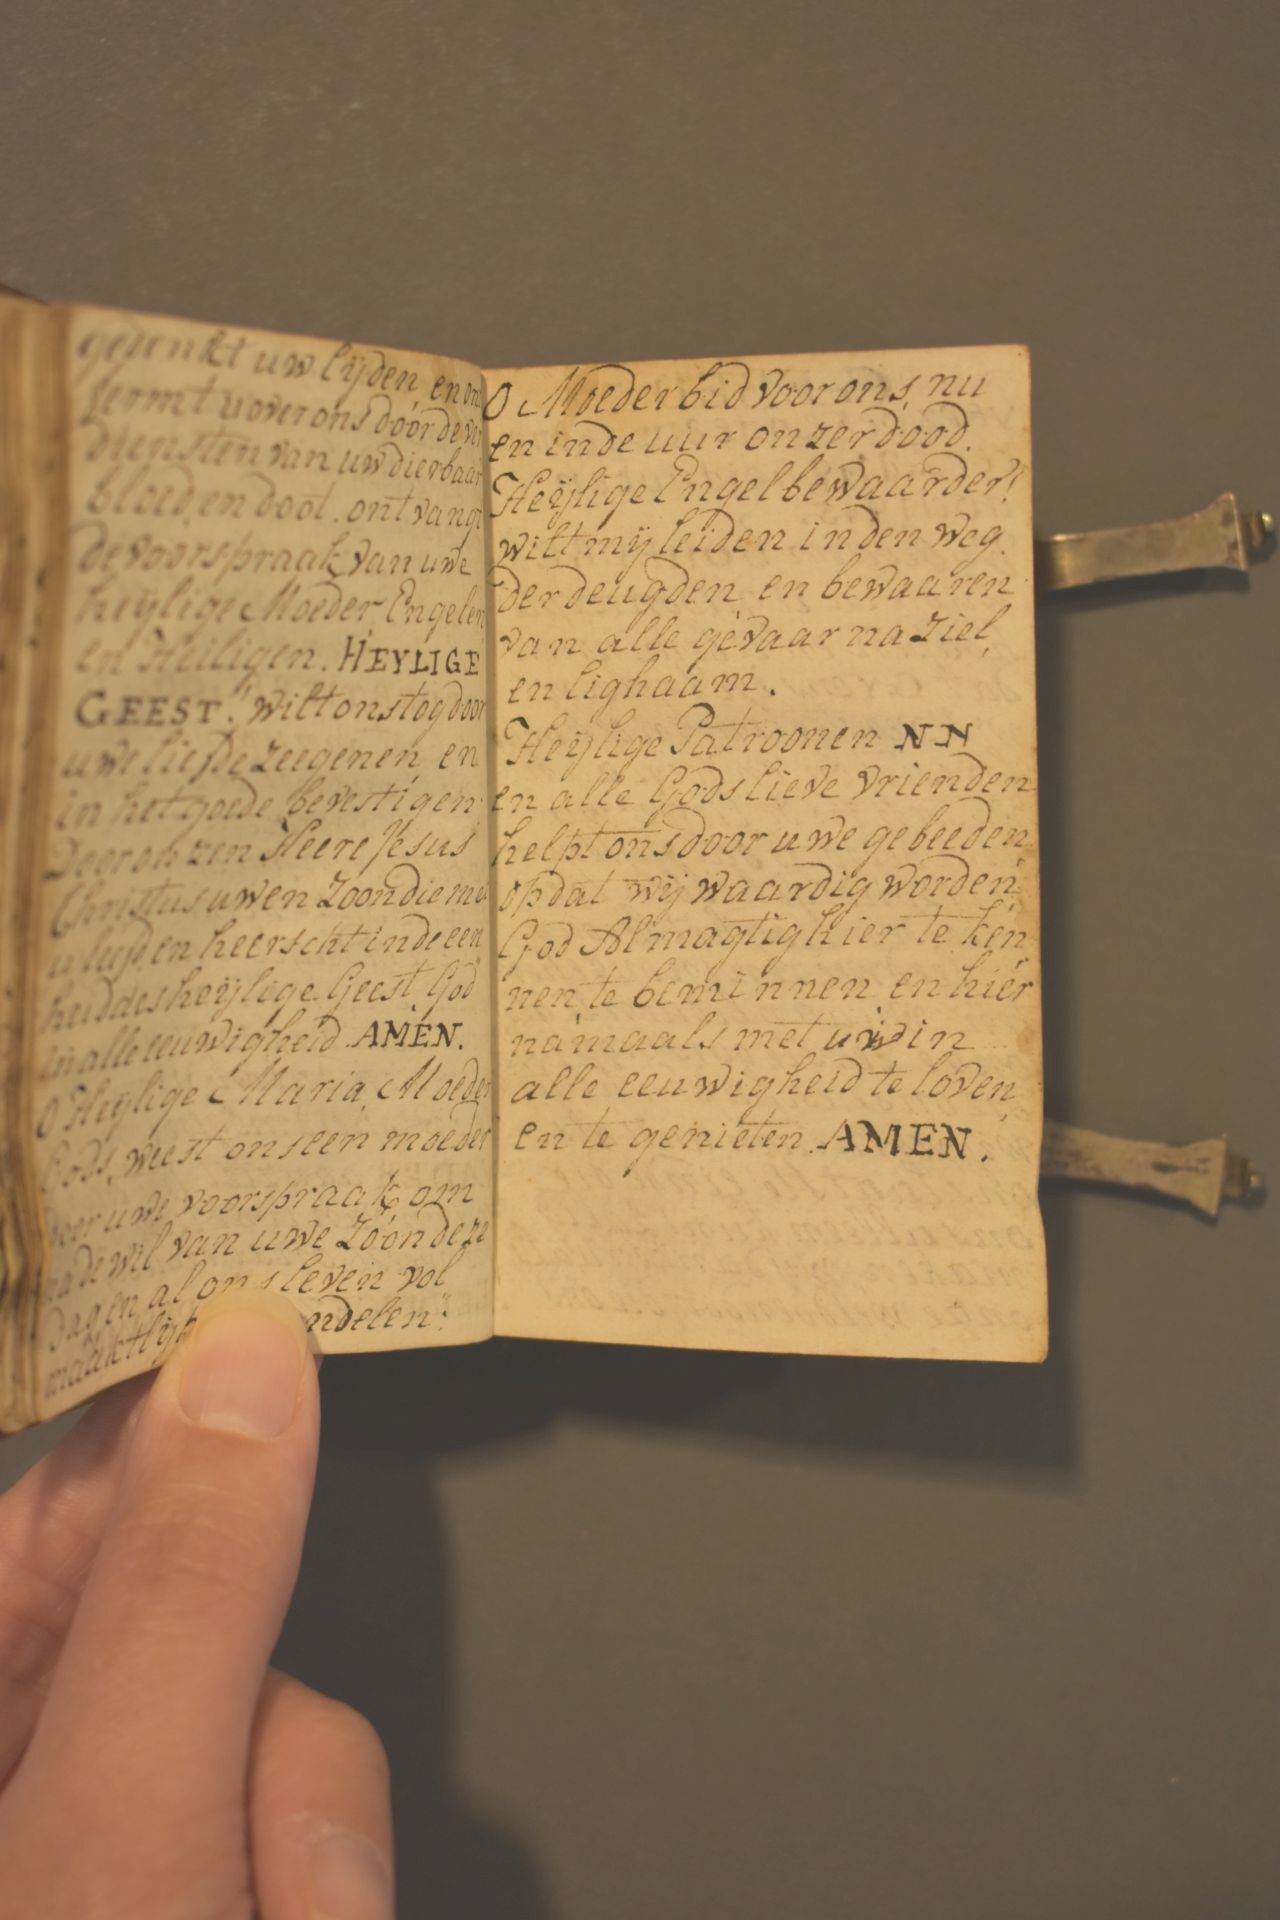 gedenkt uw lijden en on
fermt u over ons dóor de ver
diensten van uw dierbaar
bloed, en dood. ontvangt
de voorspraak van uwe
heylige Moeder Engelen
en Heiligen. HEYLIGE
GEEST! wilt ons tog door
uwe liefde zeegenen en
in het goede bevestigen
Door onzen Heere Jesus
Christus uwen Zoon die me
u leefd, en heerscht in de een
heid des heylige Geest, God
in alle eeuwigheid AMEN.
O Heylige Maria, Moeder
Gods, weest ons een moeder
door uwe voorspraak, om
na de wil van uwe Zóon deze
dag en al ons leven vol
ndelen.
O Moeder bid voor ons, nu
en in de uur onzer dood.
Heylige Engel bewaarder!
wilt mÿ leiden in den weg
der deugden, en bewaaren
van alle gevaar na ziel,
en lighaam.
Heylige Patroonen NN
en alle Gods lieve vrienden
helpt ons door uwe gebeeden
opdat wij waardig worden
God Almagtig hier te ken
nen, te beminnen en hier
namaals met u in
alle eeuwigheid te loven,
en te genieten. AMEN.